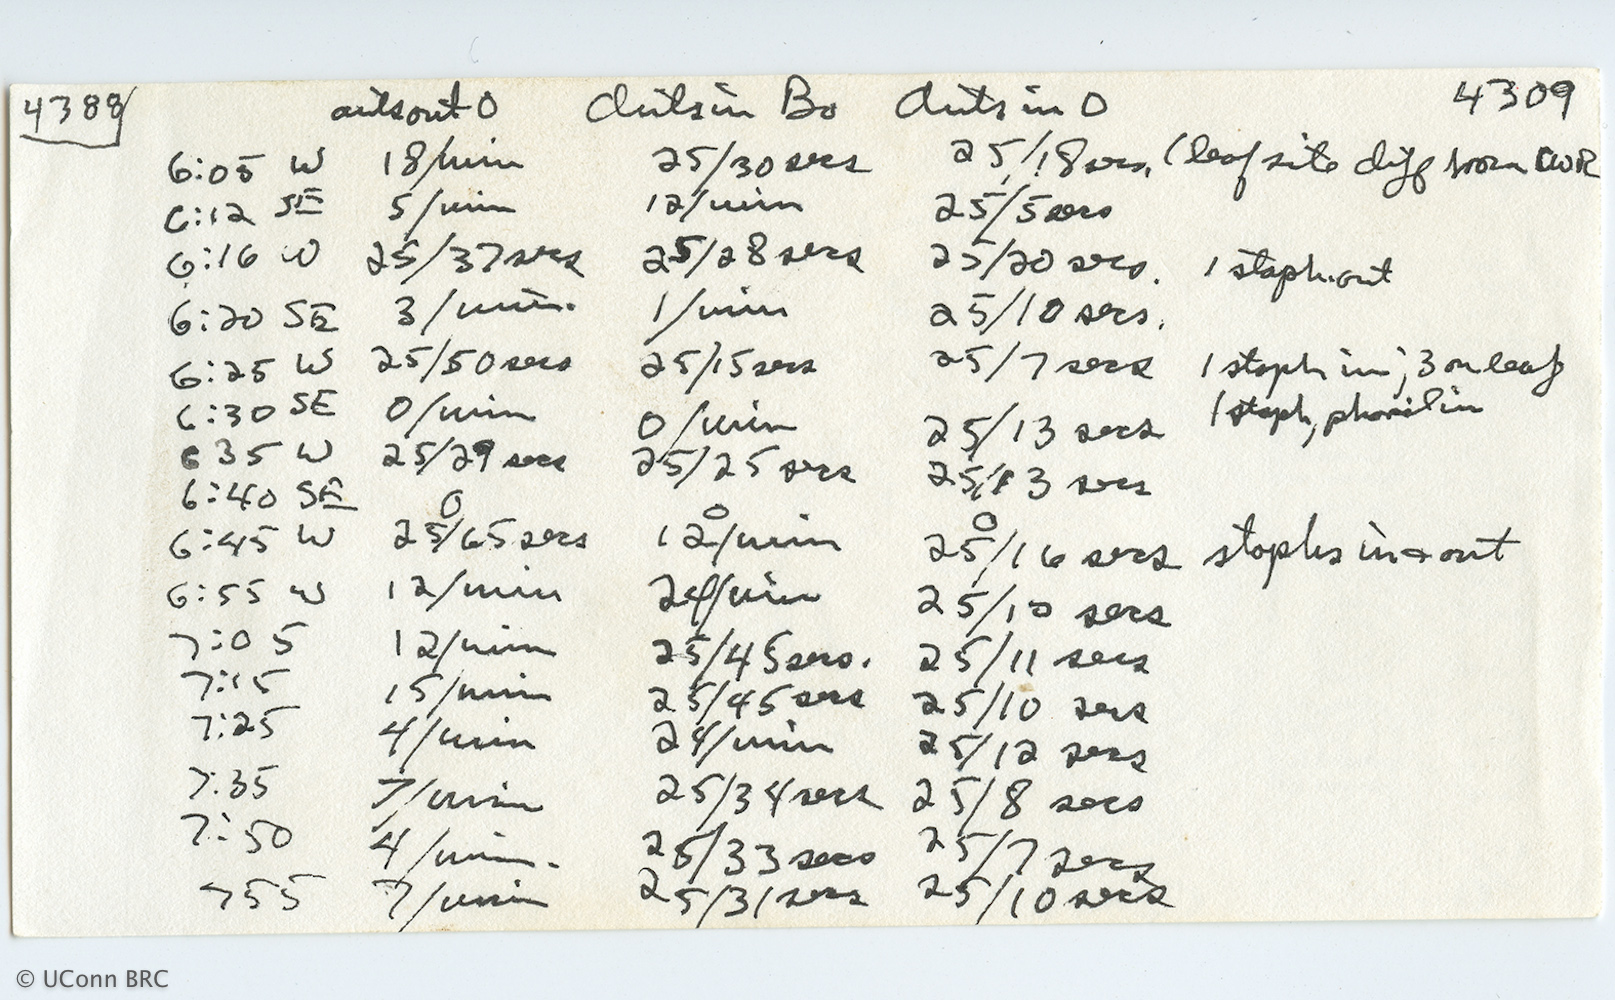 4388 antsout O Antsin Bo Ants in O 4309
6:05 W 18/min 25/30 secs 25/18 secs. (leaf site diff from CWR
6:12 SE 5/min 12/min 25/5 secs
6:16 W 25/37 secs 25/28 secs 25/20 secs. 1 staph. out
6:20 SE 3/min. 1/min 25/10 secs.
6:25 W 25/50 secs 25/15 secs 25/7 secs 1 staph in; 3 on leaf
6:30 SE 0/min 0/min 25/13 secs 1 staph, phorid in
6 35 W 25/29 secs 25/25 secs 25/13 secs
6:40 SE 0 0 0
6:45 W 25/65 secs 12/min 25/16 secs staphs in + out
6:55 W 12/min 24/min 25/10 secs
7:05 12/min 25/45 secs. 25/11 secs
7:15 15/min 25/45 secs 25/10 secs
7:25 4/min 24/min 25/12 secs
7:35 7/min 25/34 secs 25/8 secs
7:50 4/min. 25/33 secs 25/7 secs
755 7/min 25/31 secs 25/10 secs
© UConn BRC